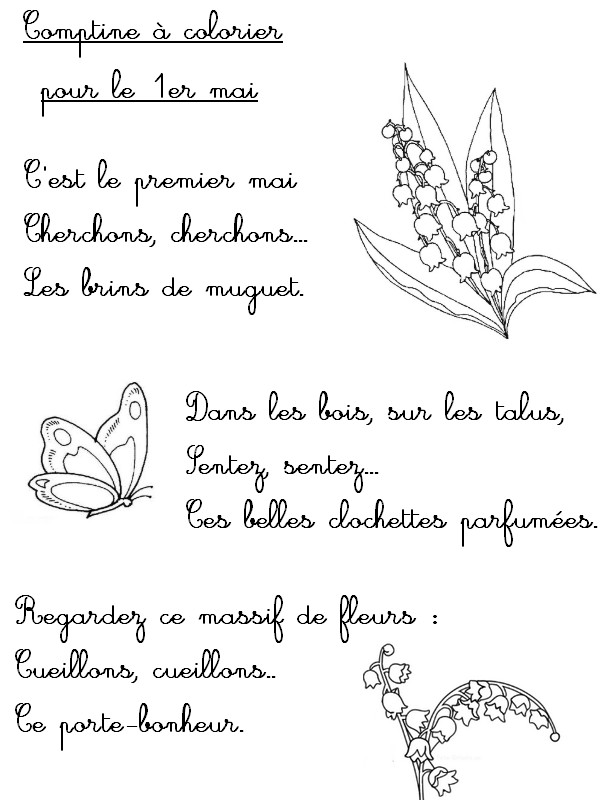 Comptine à colorier
pour le 1er mai
C'est le premier mai
Cherchons, cherchons...
Les brins de muguet.
Dans les bois, sur les talus,
Sentez, sentez...
Ces belles clochettes parfumées.
Regardez ce massif de fleurs :
Cueillons, cueillons..
Ce porte-bonheur.